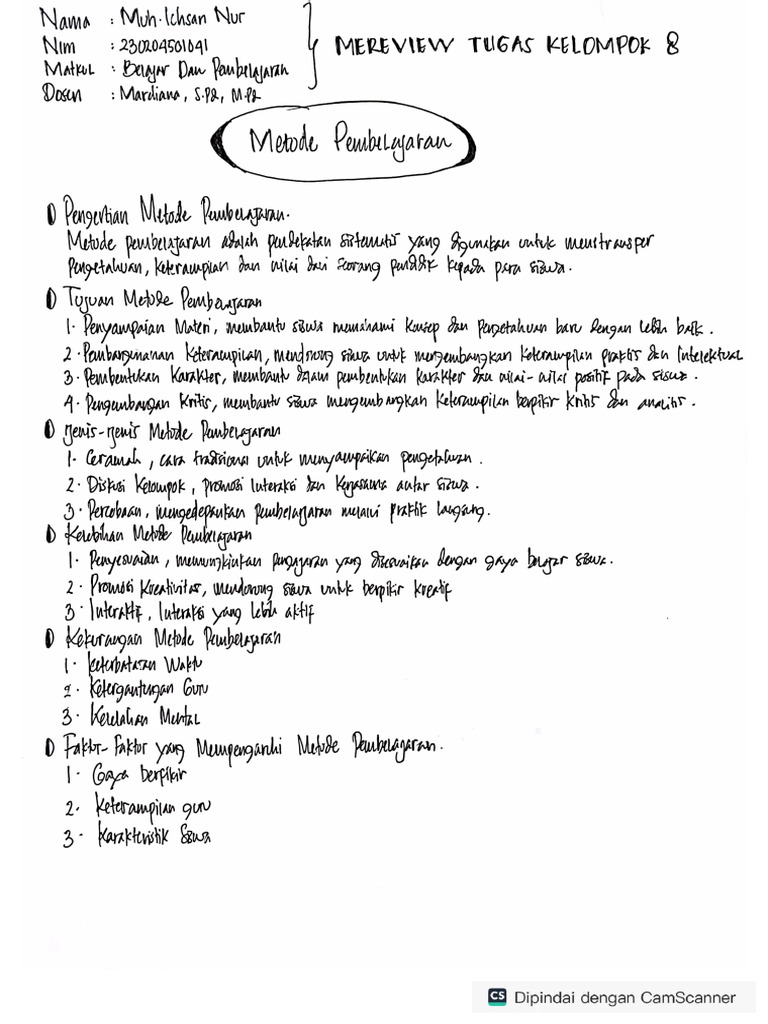 Nama : Muh. Ichsan Nur
Nim : 230204501041
Matkul : Belajar Dan Pembelajaran
Dosen : Mardiana, S.Pd, M.Pd
MEREVIEW TUGAS KELOMPOK 8
Metode Pembelajaran
Pengertian Metode Pembelajaran.
Metode pembelajaran adalah pendekatan sistematis yang digunakan untuk menstransper
Pengetahuan, keterampilan dan nilai dari seorang pendidik kepada para siswa.
Tujuan Metode Pembelajaran
1. Penyampaian Materi, membantu siswa memahami konsep dan pengetahuan baru dengan lebih baik.
2. Pembangunanan keterampilan, mendrong siswa untuk mengembangkan keterampilan praktis dan Intelektual
3. Pembentukan Karakter, membantu dalam pembentukan karakter dan nilai-nilai positif pada siswa.
4. Pengembangan Kritis, membantu siswa mengembangkan keterampilan berpikir kritis dan analitis.
Jenis-Jenis Metode Pembelajaran
1. Ceramah, cara tradisional untuk menyampaikan pengetahuan.
2. Diskusi kelompok, promosi Interaksi dan Kerjasama antar siswa.
3. Percobaan, mengedepankan pembelajaran melalui praktik langsung.
Kelebihan Metode Pembelajaran
1. Penyesuaian, memungkinkan pengajaran yang disesuaikan dengan gaya belajar siswa.
2. Promosi Kreativitas, mendorong siswa untuk berpikir kreatif
3. Interaktif, Interaksi yang lebih aktif
Kekurangan Metode Pembelajaran
1. keterbatasan Waktu
2. Ketergantungan Guru
3. Kelelahan Mental
Faktor-Faktor yang Mempengaruhi Metode Pembelajaran.
1. Gaya berfikir
2. Keterampilan guru
3. Karakteristik Siswa
CS Dipindai dengan CamScanner